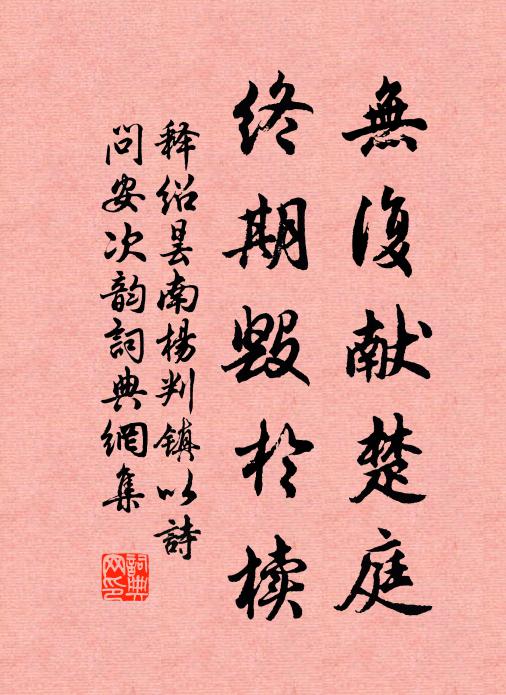 無復献楚庭
终期毁於椟
释绍昙南杨判镇以詩
问安次韵詞典網集
詞典网印